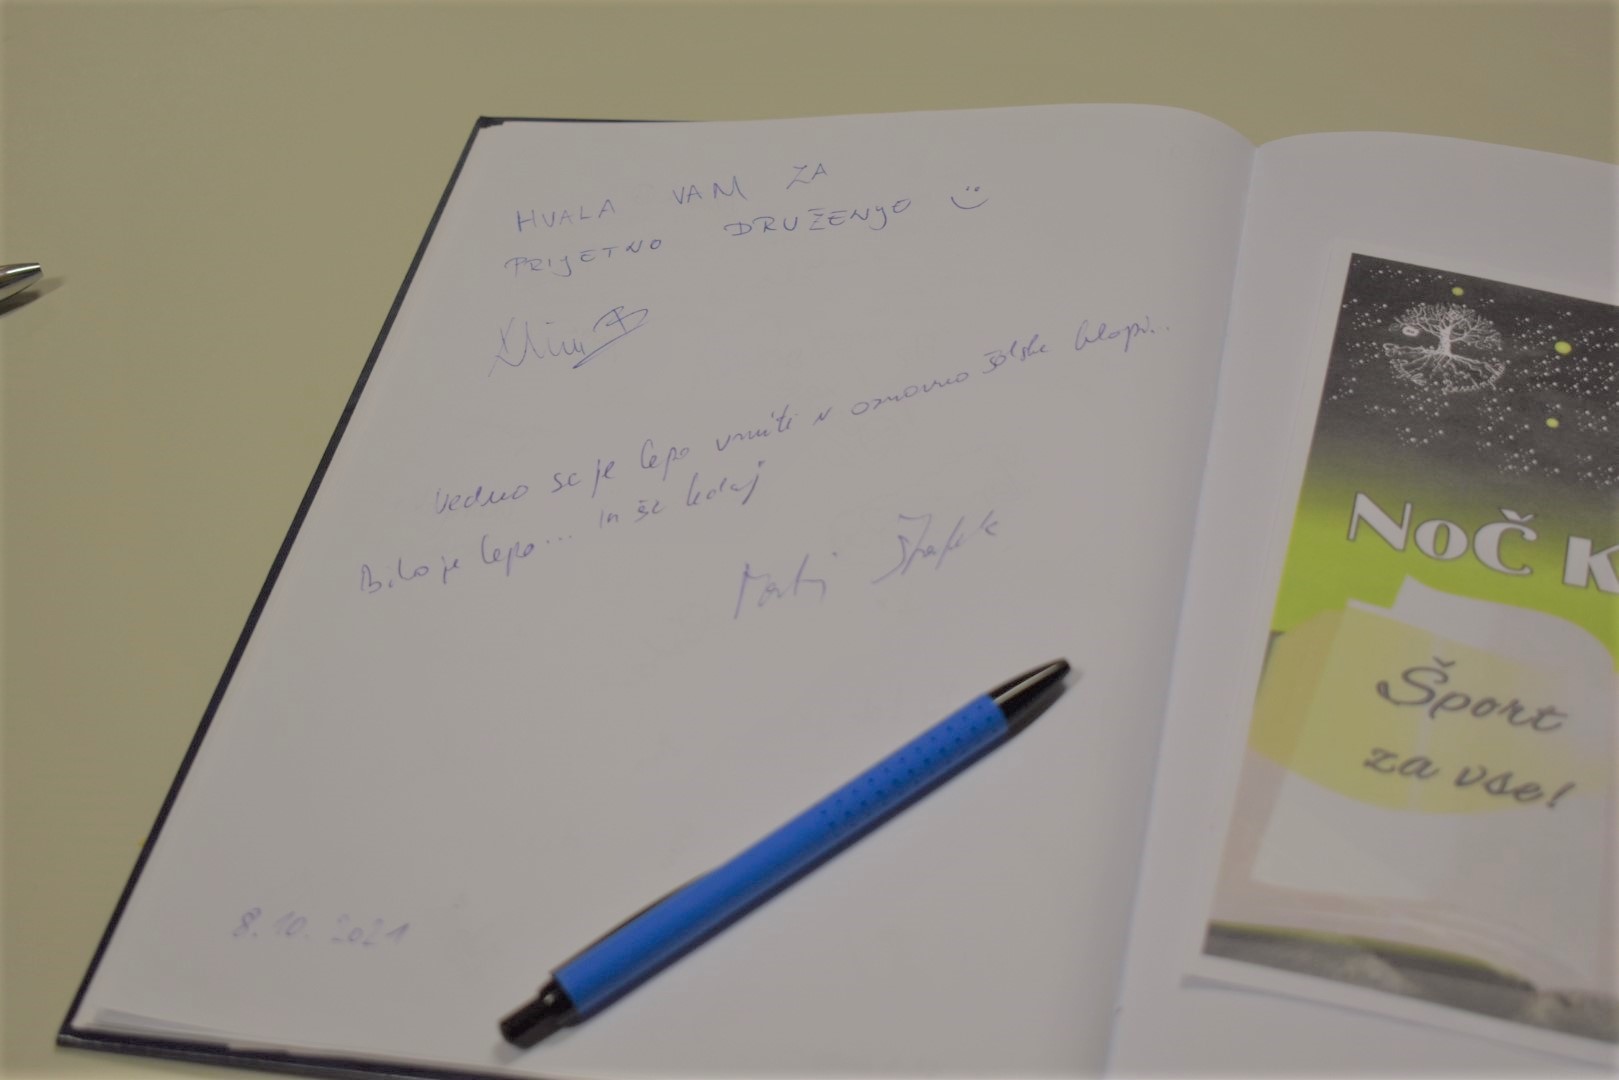 HVALA VAM ZA
PRIJETNO DRUŽENJE
Vedno se je lepo vrniti v osnovno šolske klopi...
Bilo je lepo... in še kdaj
8.10.2021
NOČ K
Šport
za vse!